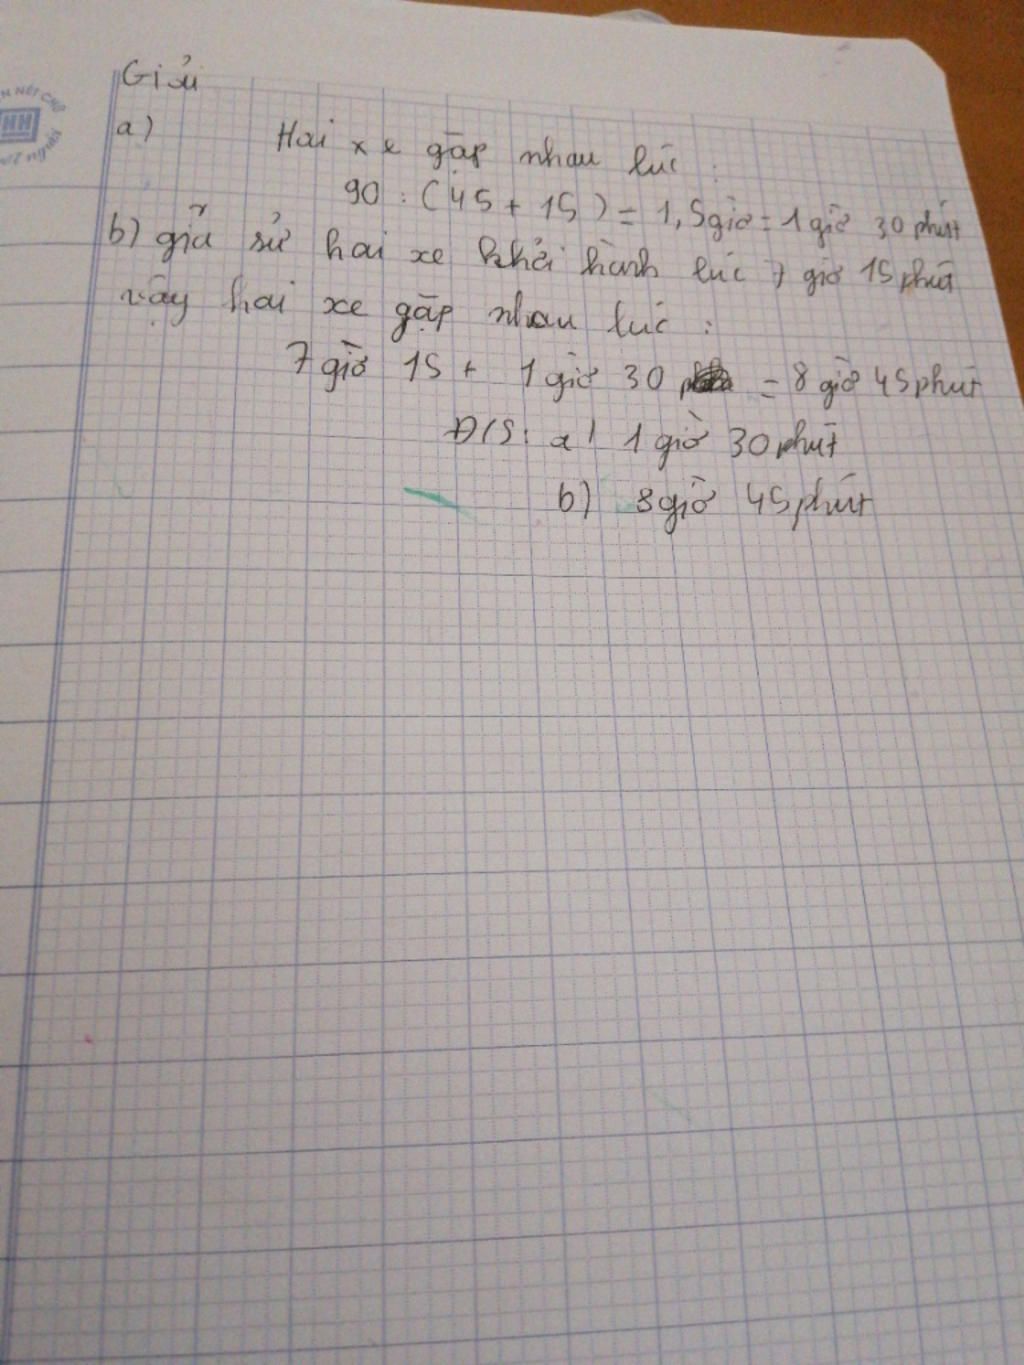 N NÉT CHỮ
HH
Giải
a) Hai xe gặp nhau lúc :
90 : (45 + 15) = 1,5giờ = 1 giờ 30 phút
b) giả sử hai xe khởi hành lúc 7 giờ 15 phút
vậy hai xe gặp nhau lúc :
7 giờ 15 + 1 giờ 30 = 8 giờ 45 phút
Đ/S: a) 1 giờ 30 phút
b) 8 giờ 45 phút